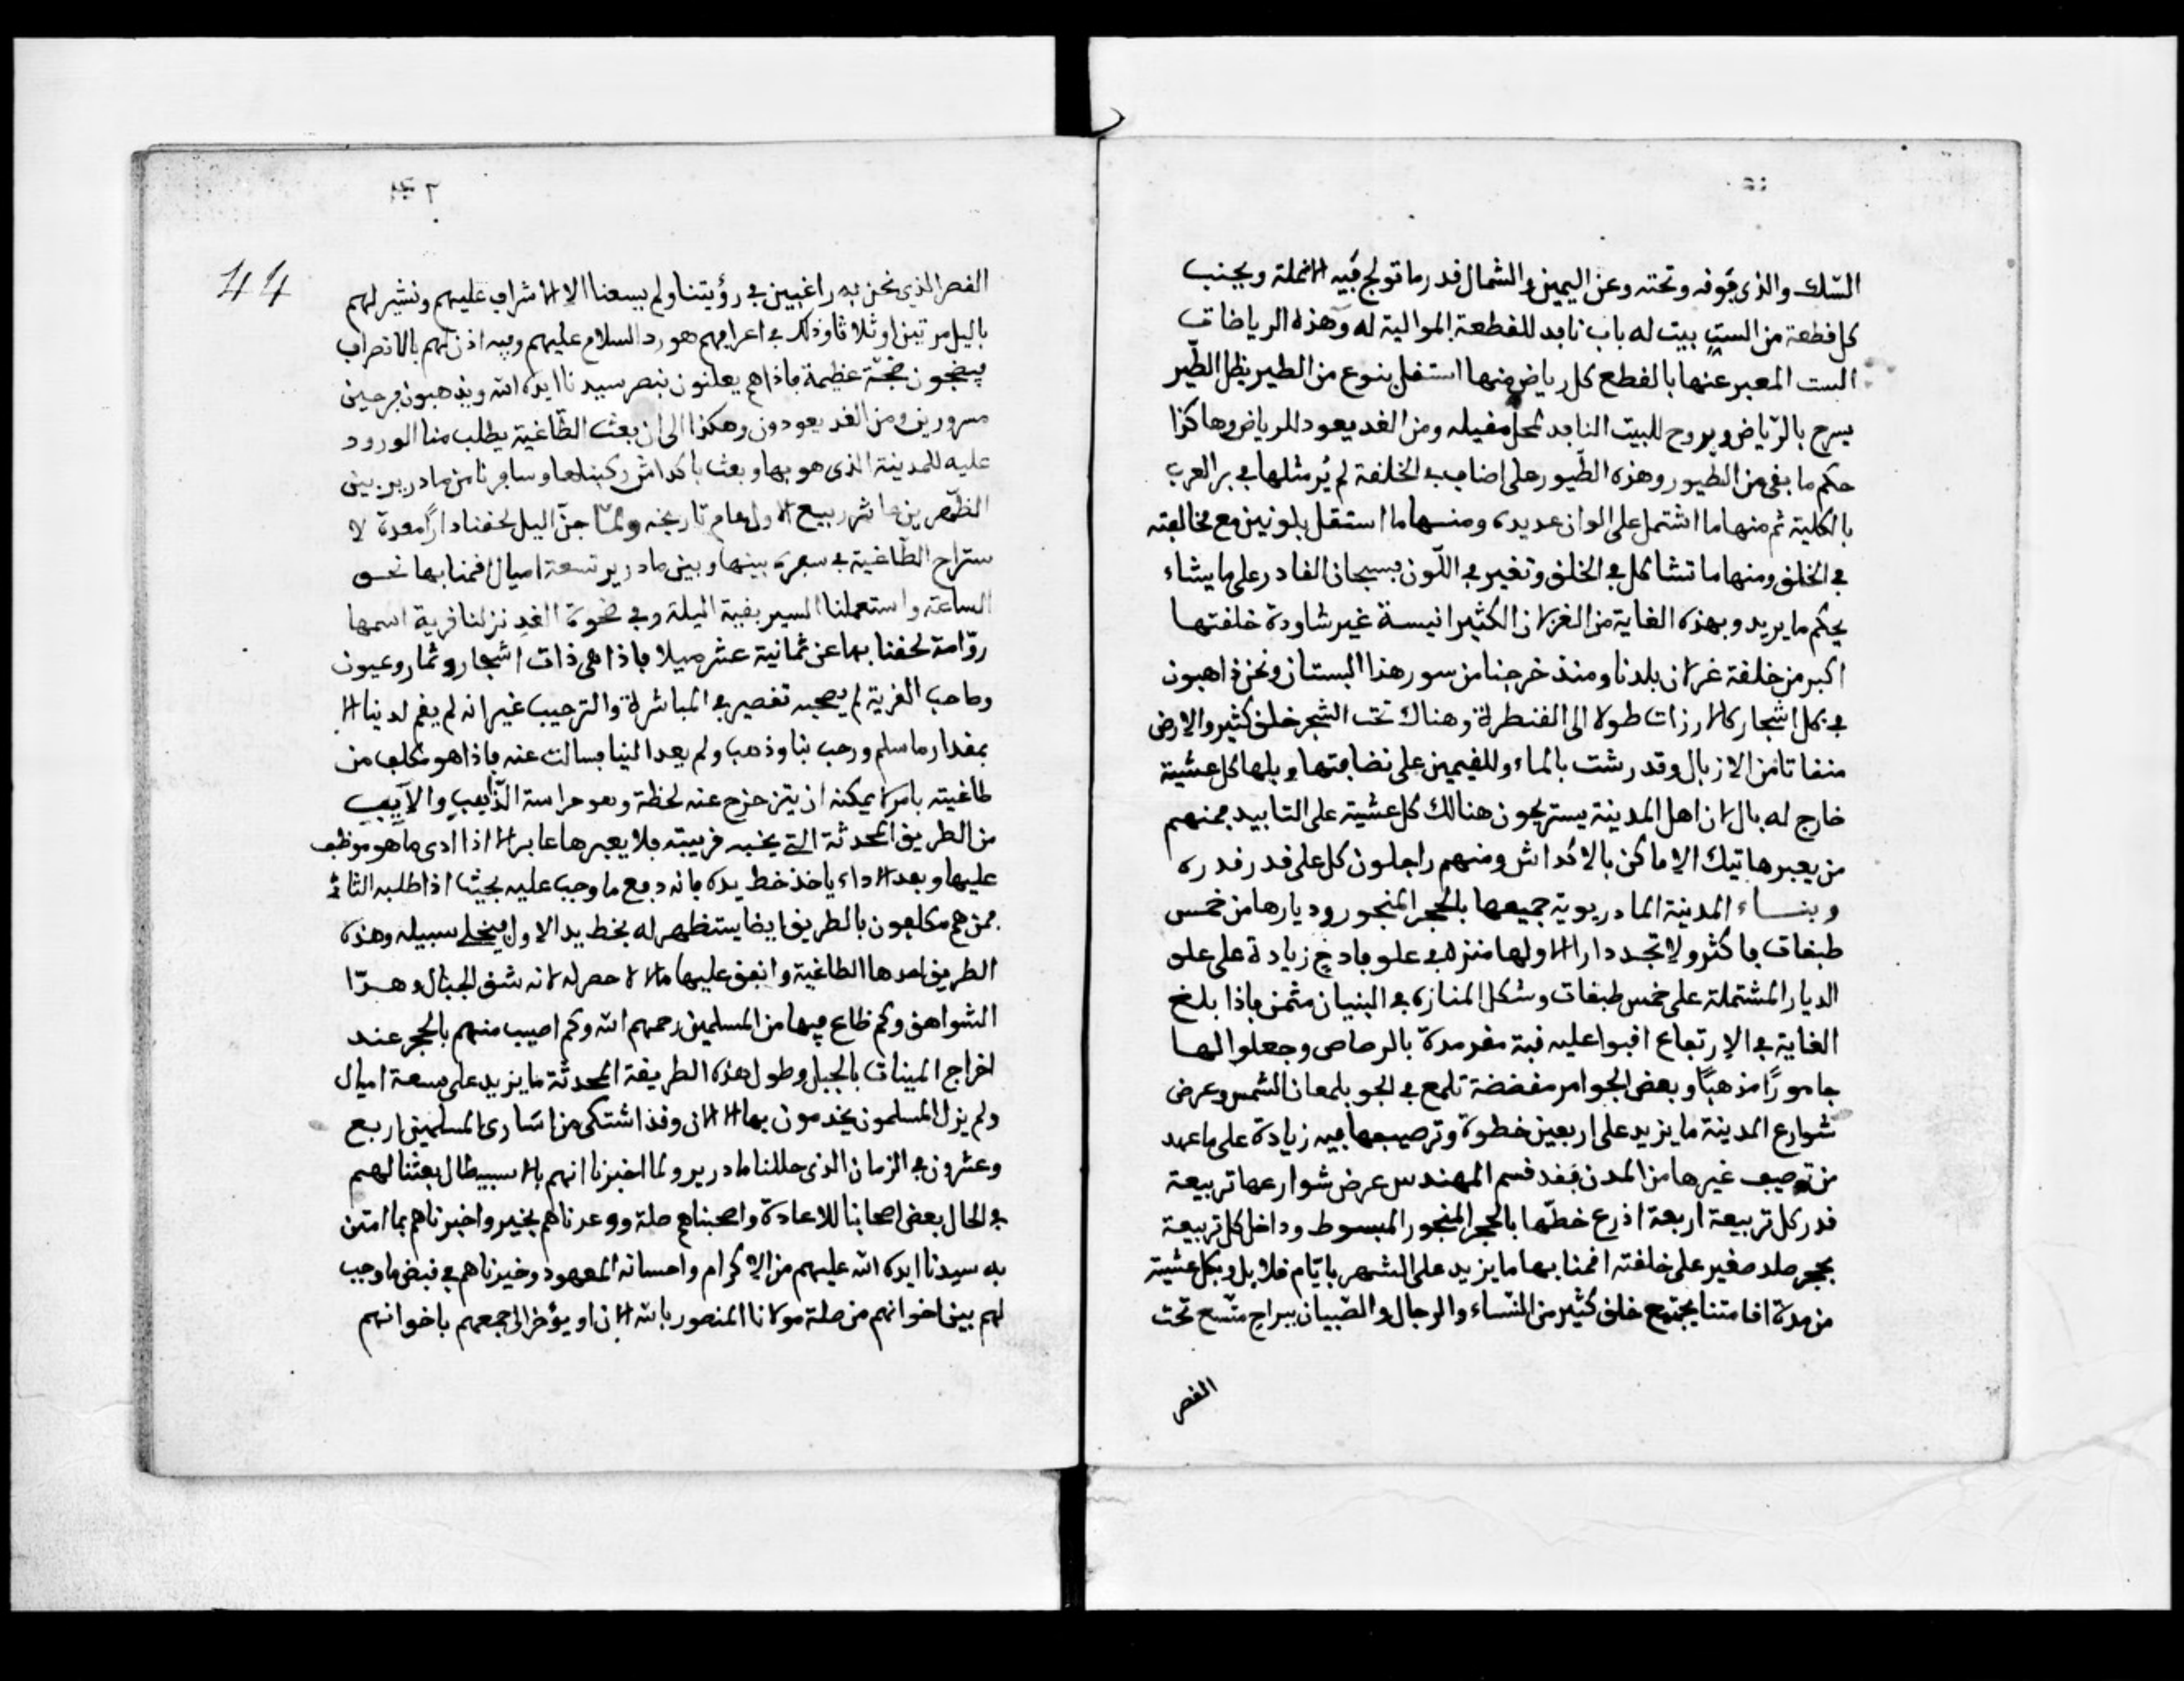 السلك والذى فوقه وتحته وعن اليمين والشمال قدر ما تولج فيه الانملة وبجنب
كل قطعة من الست بيت له باب نافذ للقطعة الموالية له وهذه الرياضات
الست المعبر عنها بالقطع كل رياض منها استقل بنوع من الطير يظل الطّير
يسرح بالرّياض ويروح للبيت النافذ لمحل مقيله ومن الغد يعود للرياض وهاكذا
حكم ما بقى من الطيور وهذه الطّيور على اضاب فى الخلقة لم يُر مثلها فى بر العرب
بالكلية ثم منها ما اشتمل على الوان عديدة ومنها ما استقل بلونين مع مخالفته
فى الخلق ومنها ما تشاكل فى الخلق وتغير فى اللّون فسبحان القادر على ما يشاء
يحكم ما يريد وبهذه الغاية من الغزلان الكثير انيسة غير شاردة خلقتها
اكبر من خلقة غزلان بلدنا ومنذ خرجنا من سور هذا البستان ونحن ذاهبون
فى ظل اشجار كالارزات طولا الى القنطرة وهناك تحت الشجر خلق كثير والارض
منقاتا من الازبال وقد رشت بالماء وللقيمين على نضافتها وبلها كل عشية
خارج له بال لان اهل المدينة يستريحون هنالك كل عشية على التابيد فمنهم
من يعبر هاتيك الاماكن بالاكداش ومنهم راجلون كل على قدر قدره
وبنـاء المدينة المادريوية جميعها بالحجر المنجور وديارها من خمس
طبقات فاكثر ولا تجد دارا الا ولها منزه فى علو فادح زيادة على علو
الديار المشتملة على خمس طبقات وشكل المنازه فى البنيان مثمن فاذا بلغ
الغاية فى الارتفاع اقبوا عليه قبة مقرمدة بالرصاص وجعلوا لها
جامورًا مذهبًا وبعض الجوامر مفضضة تلمع فى الجو بلمعان الشمس وعرض
شوارع المدينة ما يزيد على اربعين خطوة وترصيعها فيه زيادة على ما عهد
من توصيف غيرها من المدن فقد قسم المهندس عرض شوارعها تربيعة
قدر كل تربيعة اربعة اذرع خطّها بالحجر المنجور المبسوط وداخل كل تربيعة
بحجر صلد صغير على خلقته اقمنا بها ما يزيد على الشهر بايّام قلائل وبكل عشية
من مدة اقامتنا يجتمع خلق كثير من النّساء والرجال والصّبيان ببراح متّسع تحت
القصر
44
القصر الذى نحن به راغبين فى رؤيتنا ولم يسعنا الا الاشراف عليهم ونشير لهم
باليد مرتين او ثلاثا وذلك فى اعرافهم هو رد السلام عليهم وفيه اذن لهم بالانصراف
فيضجون ضجّة عظيمة فاذا هم يعلنون بنصر سيدنا ايده الله ويذهبون فرحين
مسرورين ومن الغد يعودون وهكذا الى ان بعث الطّاغية يطلب منا الورود
عليه للمدينة الذى هو بها وبعث باكداش ركبناها وسافرنا من مادرير بين
الظّهرين عاشر ربيع الاول عام تاريخه ولمّا جنّ اليل لحقنا دارًا معدة لا
ستراح الطّاغية فى سفره بينها وبين مادرير تسعة اميال اقمنا بها نحو
الساعة واستعملنا السير بقية الليلة وفى ضحوة الغد نزلنا قرية اسمها
روّامة لحقنا بها عن ثمانية عشر ميلا فاذا هى ذات اشجار وثمار وعيون
وصاحب القرية لم يصحبه تقصير فى المباشرة والترحيب غير انه لم يقم لدينا الا
بمقدار ما سلم ورحب بنا وذهب ولم يعد الينا فسالت عنه فاذا هو مكلف من
طاغيته بامر لا يمكنه ان يتزحزح عنه لحظة وهو حراسة الذّاهب والآيب
من الطريق المحدثة التى بجنب قريته فلا يعبرها عابر الا اذا ادى ما هو موظف
عليها وبعد الاداء ياخذ خط يده بانه دفع ما وجب عليه بحيث اذا طلبه الثانى
ممن هم مكلفون بالطريق ايضا يستظهر له بخط يد الاول فيخلى سبيله وهذه
الطريق امر بها الطاغية وانفق عليها ما لا حصر له لانه شق الجبال وهـدّا
الشواهق وكم ضاع فيها من المسلمين رحمهم الله وكم اصيب منهم بالحجر عند
اخراج المينات بالجبل وطول هذه الطريقة المحدثة ما يزيد على سبعة اميال
ولم يزل المسلمون يخدمون بها الى الان وقد اشتكى من اسارى المسلمين اربع
وعشرون فى الزمان الذى حللنا مادرير ولما اخبرنا انهم بالاسبيطال بعثنا لهم
فى الحال بعض اصحابنا للاعادة واصحبناهم صلة ووعدناهم بخير واخبرناهم بما امتن
به سيدنا ايده الله عليهم من الاكرام واحسانه المعهود وخيرناهم فى قبض ما وجب
لهم بين اخوانهم من صلة مولانا المنصور بالله الان او يؤخر الى جمعهم باخوانهم